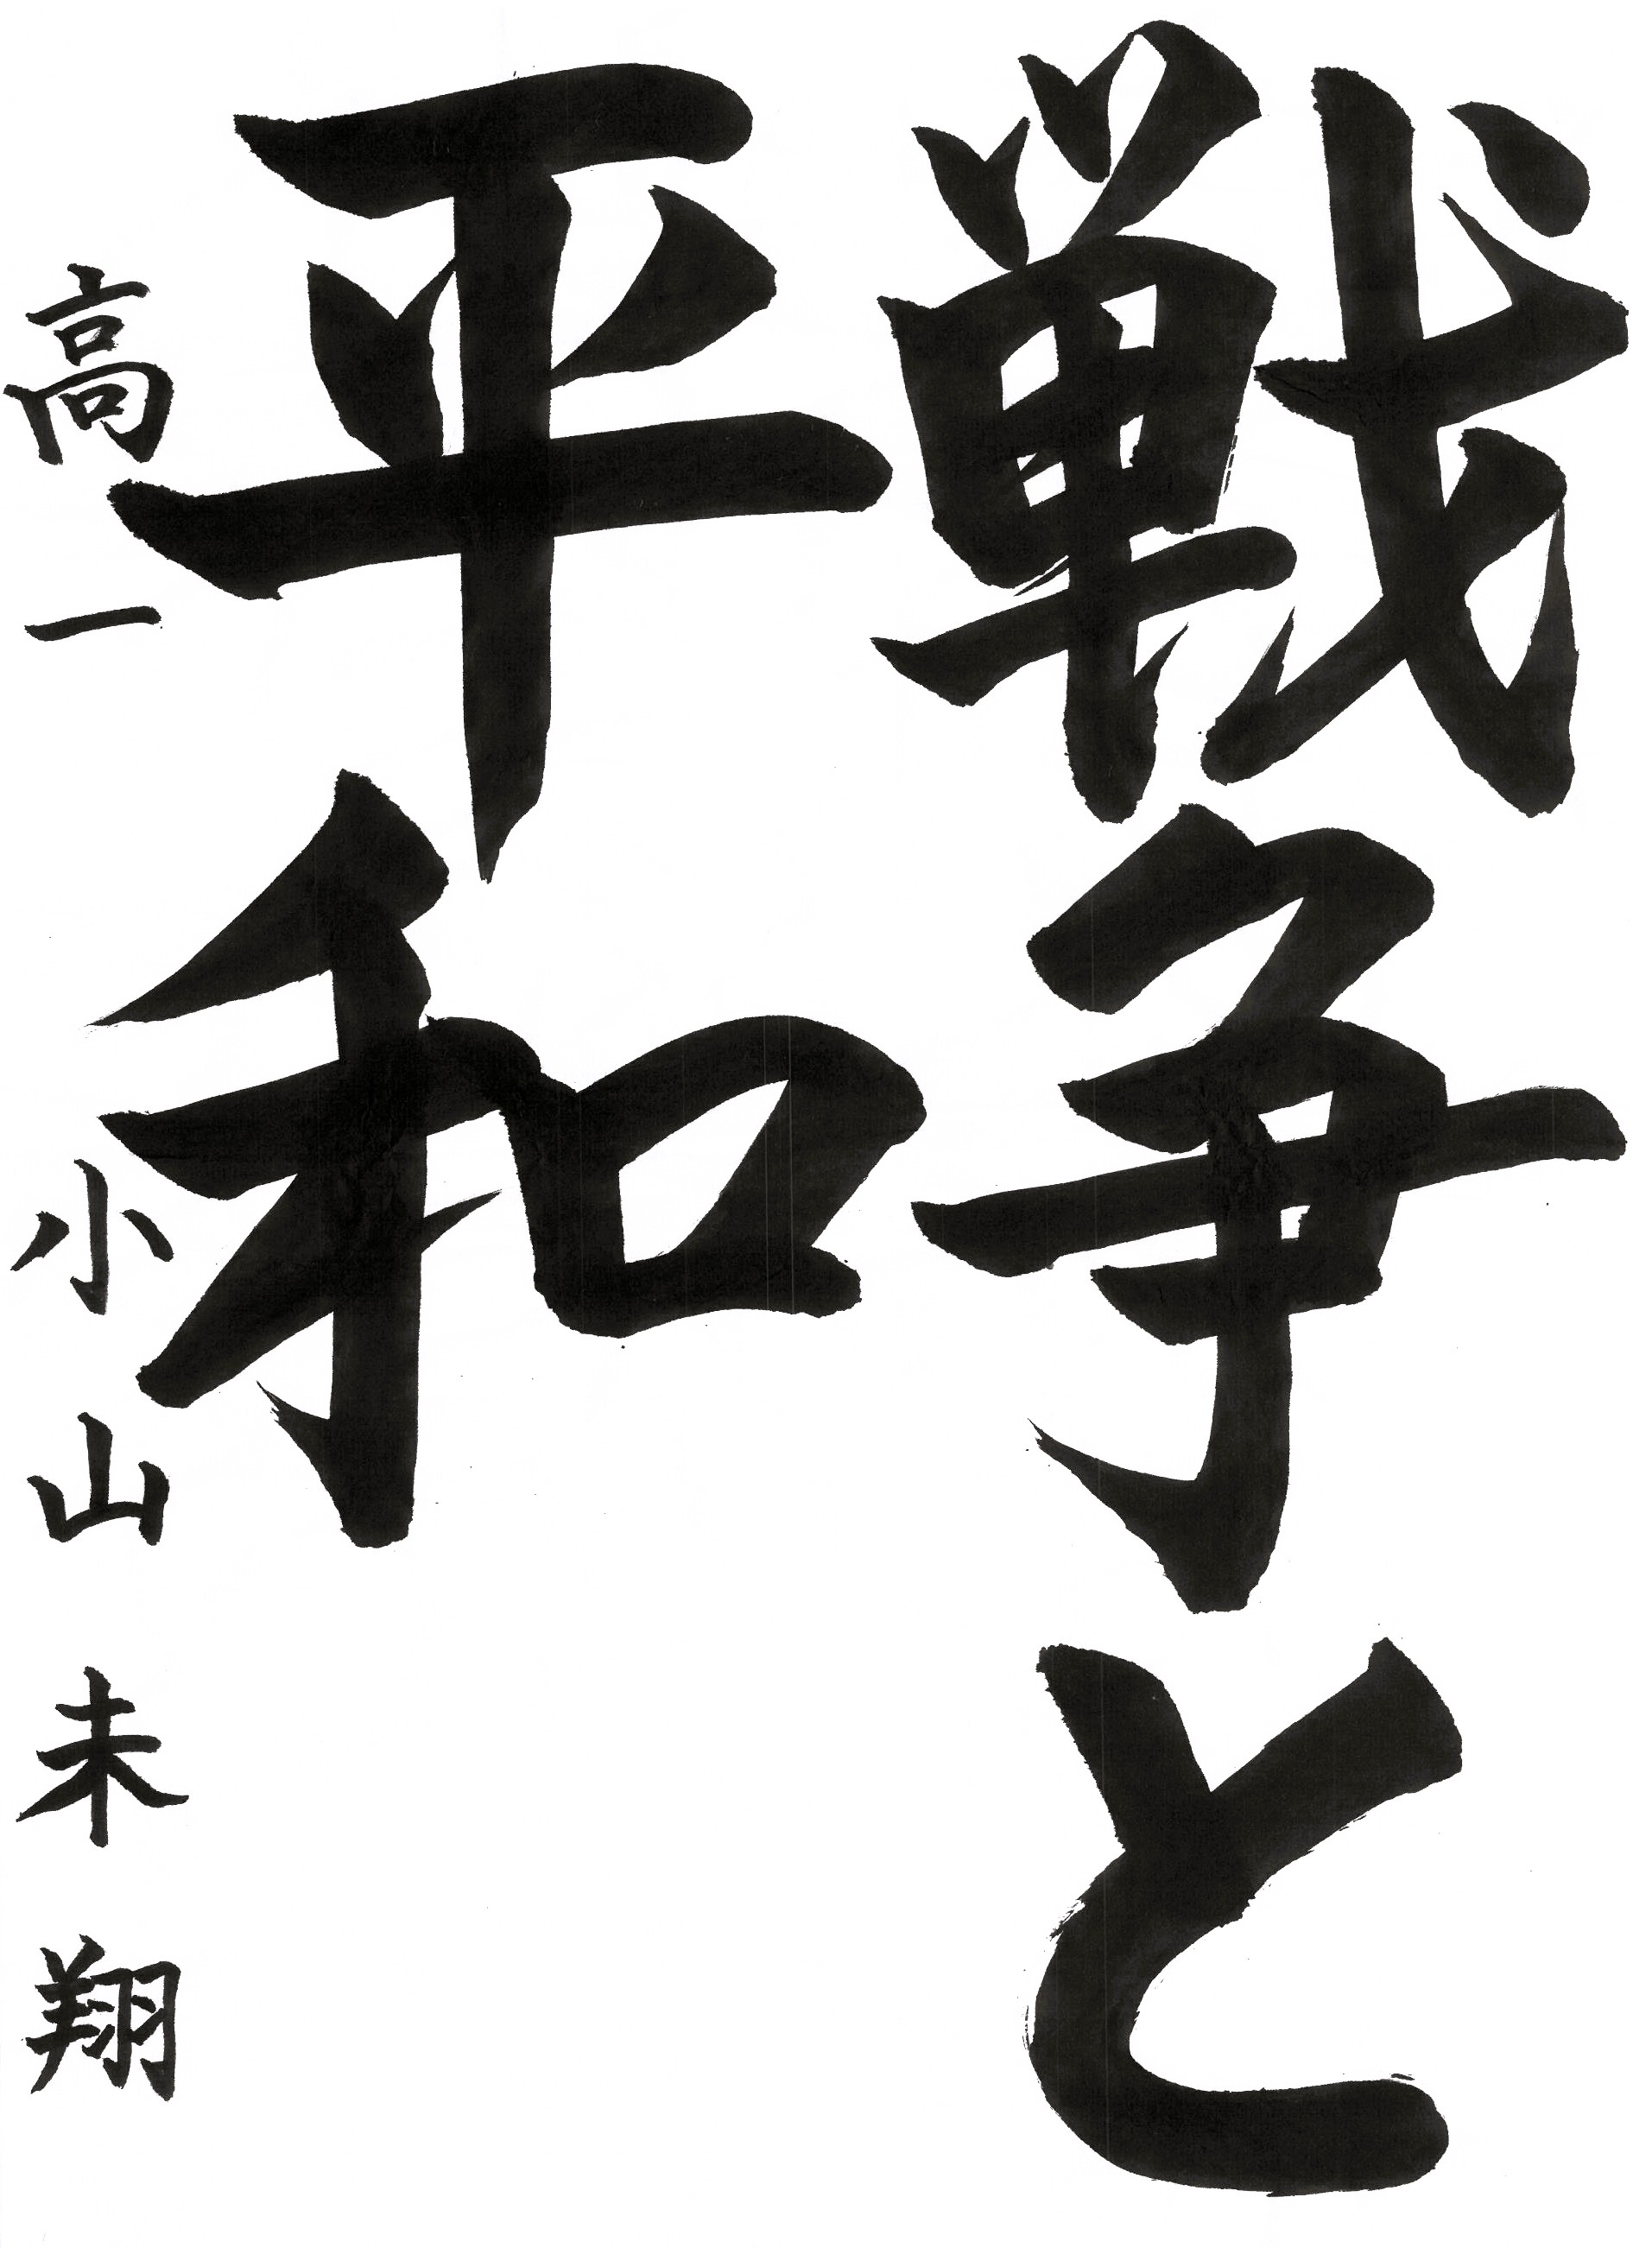 戦争と
平和
高一 小山未翔